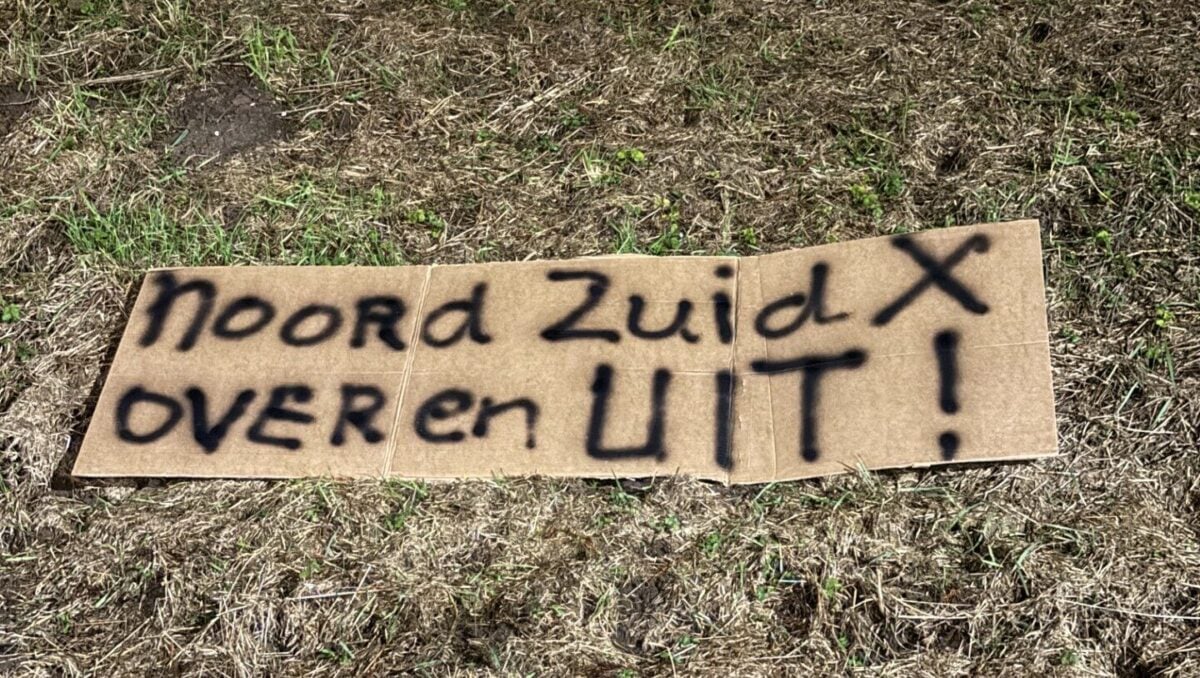 noord Zuid X
OVER en UIT!